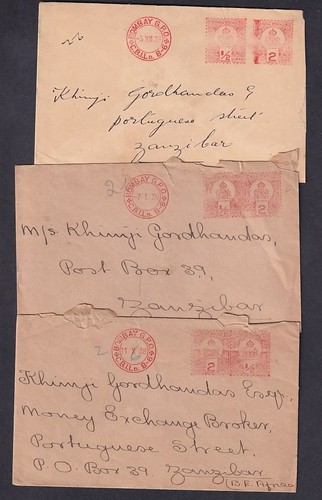 BOMBAY G.P.O.
C.B.I Ln. B-6
½ 2
Khimji Gordhandas
portuguese street
Zanzibar
2
BOMBAY G.P.O.
C.B.I Ln. B-6
½ 2
M/s Khimji Gordhandas,
Post Box 39,
Zanzibar
2
BOMBAY G.P.O.
C.B.I Ln. B-6
2 ½
Khimji Gordhandas Esqr.
Money Exchange Broker,
Portuguese Street.
P.O. Box 39. Zanzibar
(B.E. Africa